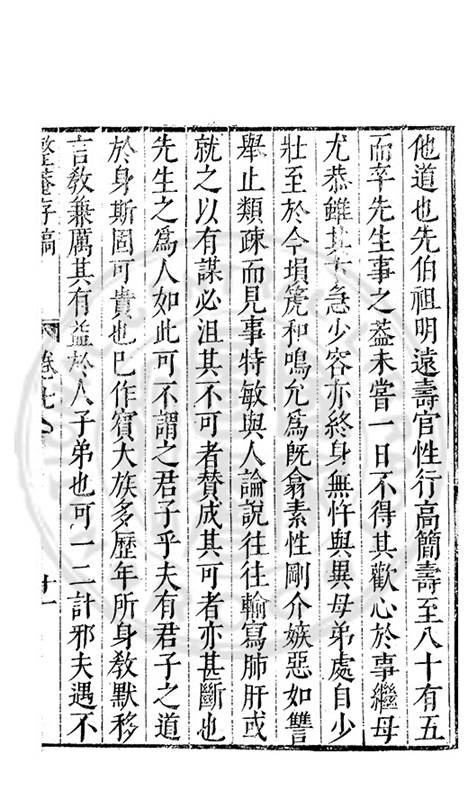 他道也先伯祖明遠壽官性行高簡壽至八十有五
而卒先生事之葢未嘗一日不得其歡心於事繼母
尤恭雖其卞急少容亦終身無忤與異母弟處自少
壯至於今塤箎和鳴允爲旣翕素性剛介嫉惡如讐
舉止類疎而見事特敏與人論說往往輸寫肺肝或
就之以有謀必沮其不可者贊成其可者亦甚斷也
先生之爲人如此可不謂之君子乎夫有君子之道
於身斯固可貴也已作賓大族多歷年所身敎默移
言敎兼厲其有益於人子弟也可一二計邪夫遇不
整菴存稿
卷九
十一